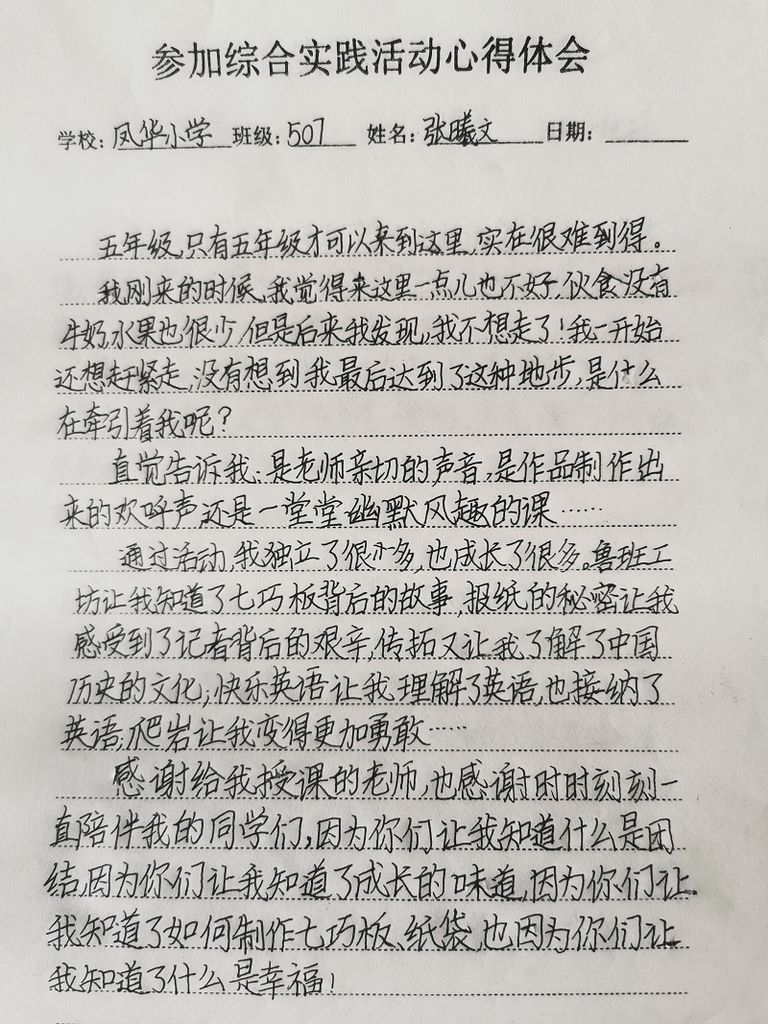 参加综合实践活动心得体会
学校：凤华小学 班级：507 姓名：张曦文 日期：
五年级，只有五年级才可以来到这里，实在很难到得。
我刚来的时候，我觉得来这里一点儿也不好，伙食没有
牛奶，水果也很少，但是后来我发现，我不想走了！我一开始
还想赶紧走，没有想到我最后达到了这种地步，是什么
在牵引着我呢？
直觉告诉我：是老师亲切的声音，是作品制作出
来的欢呼声，还是一堂堂幽默风趣的课……
通过活动，我独立了很多，也成长了很多。鲁班工
坊让我知道了七巧板背后的故事，报纸的秘密让我
感受到了记者背后的艰辛，传拓又让我了解了中国
历史的文化；快乐英语让我理解了英语，也接纳了
英语；爬岩让我变得更加勇敢……
感谢给我授课的老师，也感谢时时刻刻一
直陪伴我的同学们，因为你们让我知道什么是团
结，因为你们让我知道了成长的味道，因为你们让
我知道了如何制作七巧板、纸袋，也因为你们让
我知道了什么是幸福！